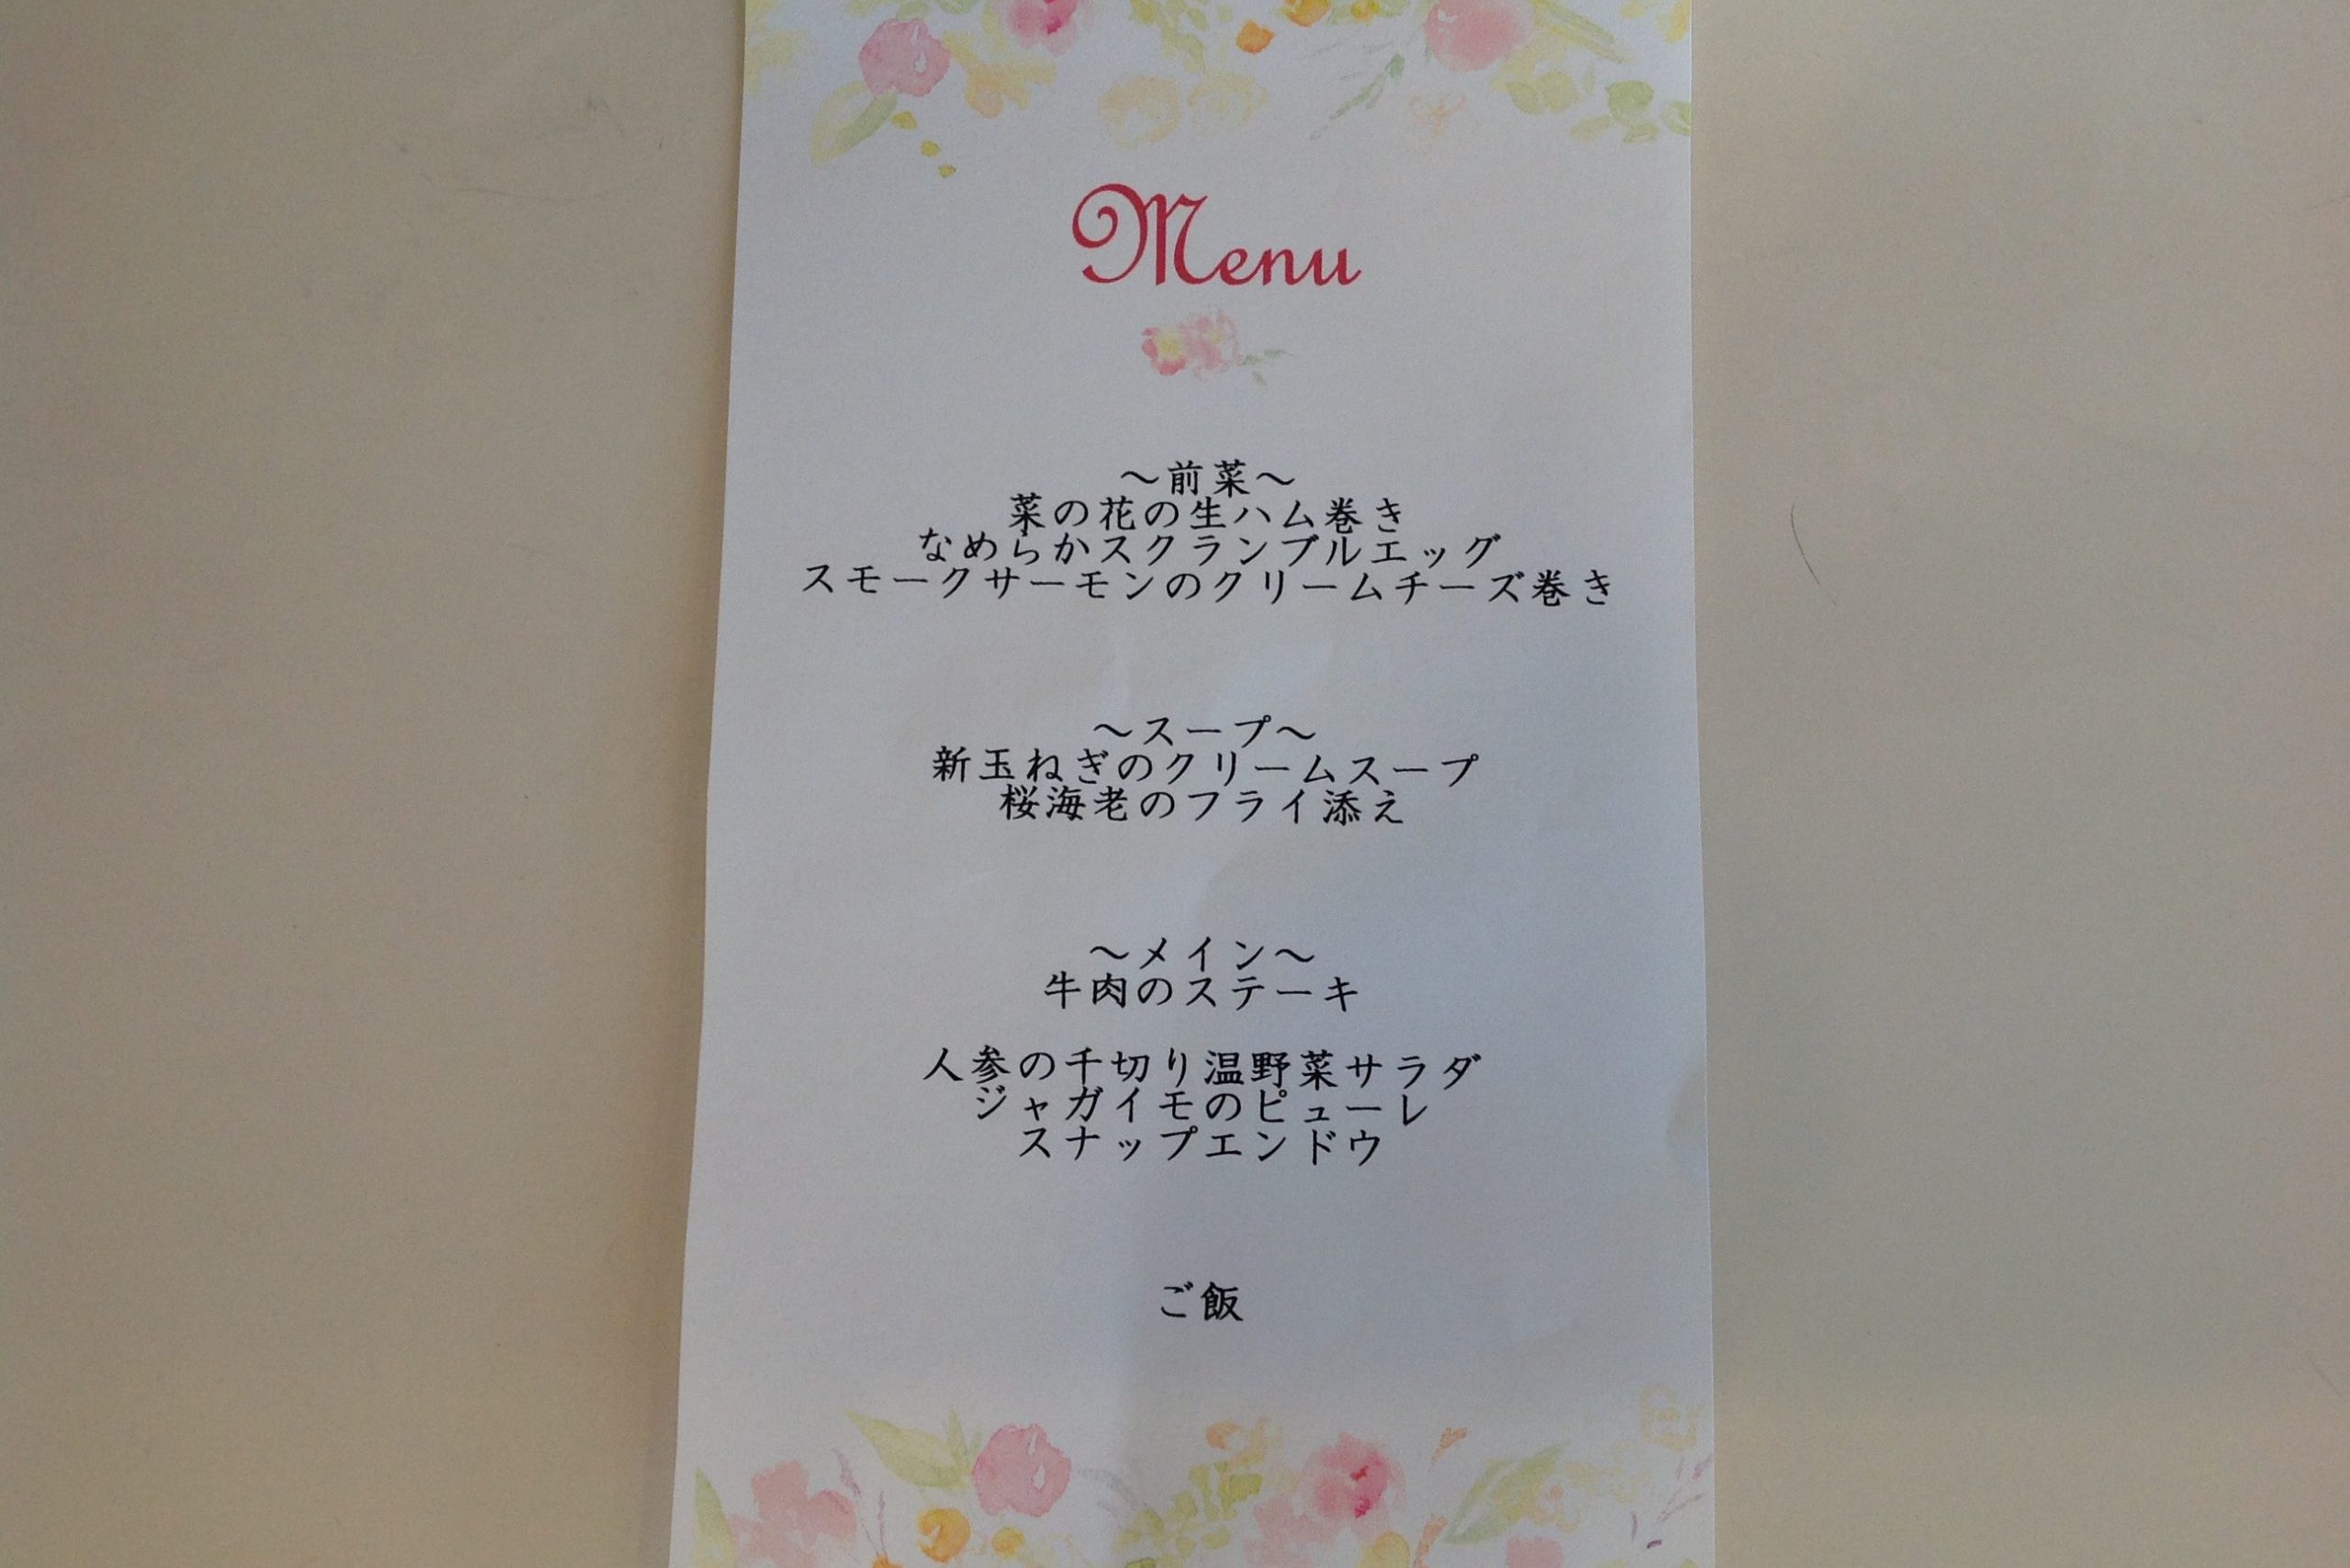 Menu
〜前菜〜
菜の花の生ハム巻き
なめらかスクランブルエッグ
スモークサーモンのクリームチーズ巻き
〜スープ〜
新玉ねぎのクリームスープ
桜海老のフライ添え
〜メイン〜
牛肉のステーキ
人参の千切り温野菜サラダ
ジャガイモのピューレ
スナップエンドウ
ご飯